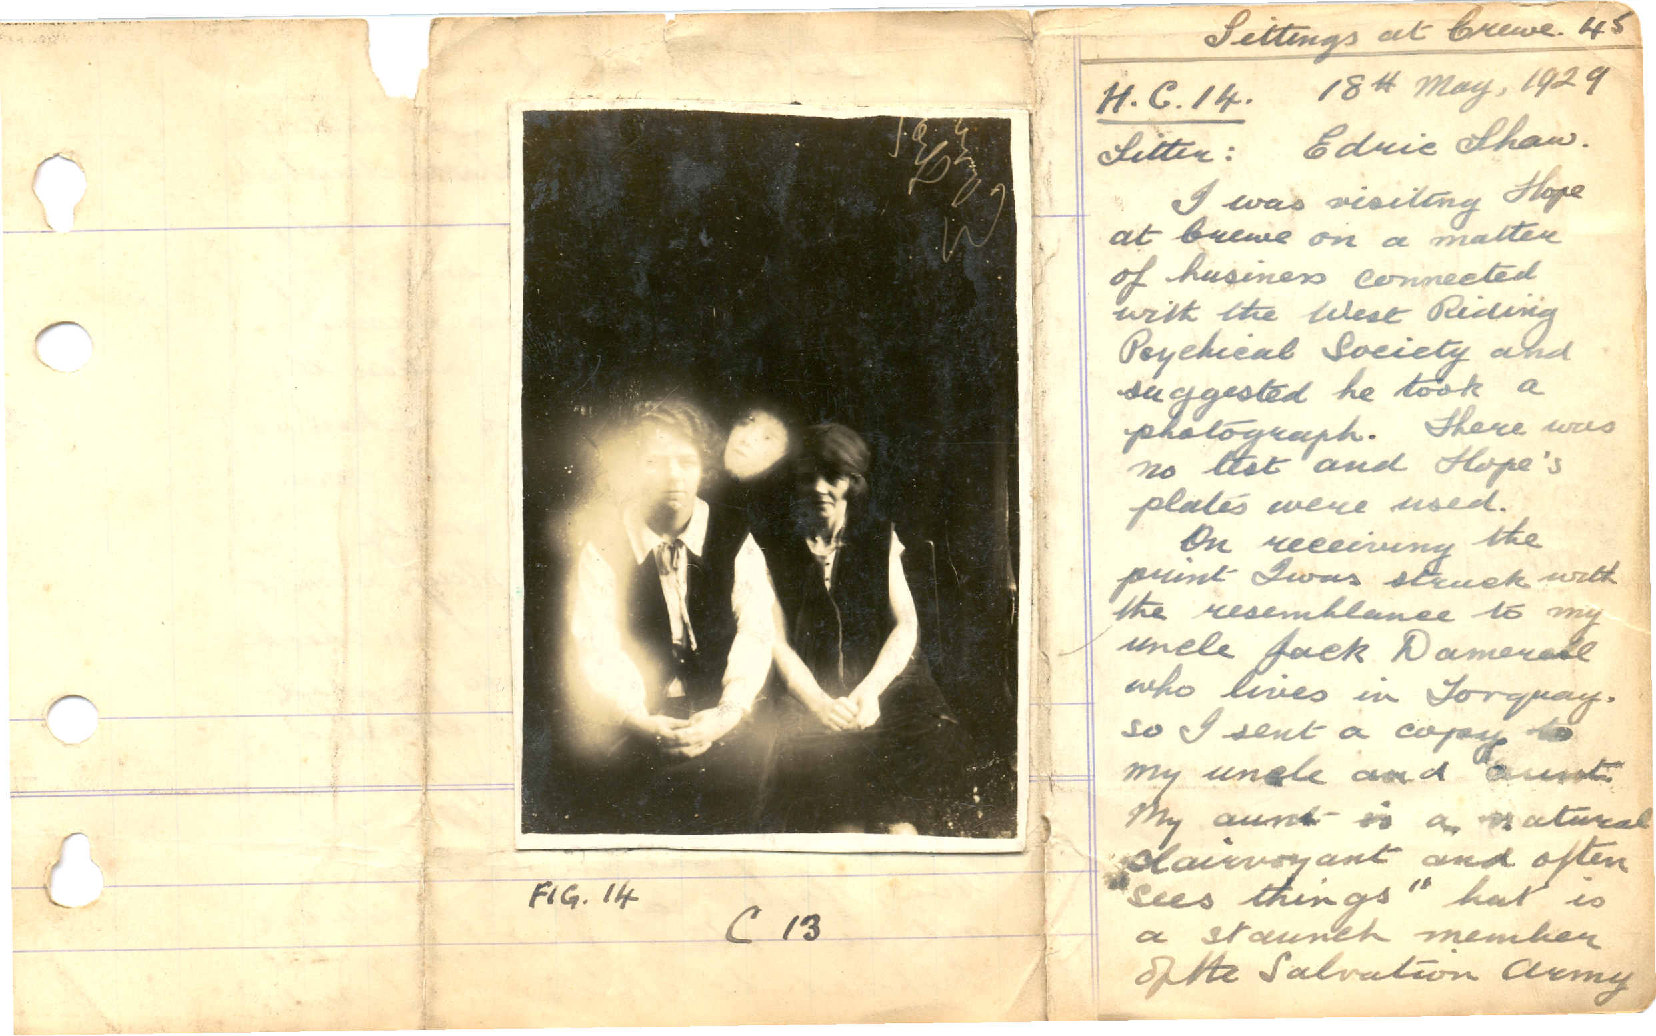 Sittings at Crewe. 45
H.C.14. 18th May, 1929
Sitter: Edric Shaw.
I was visiting Hope
at Crewe on a matter
of business connected
with the West Riding
Psychical Society and
suggested he took a
photograph. There was
no test and Hope's
plates were used.
On receiving the
print I was struck with
the resemblance to my
uncle Jack Damerell
who lives in Torquay.
so I sent a copy to
my uncle and aunt.
My aunt is a natural
clairvoyant and often
"sees things" but is
a staunch member
of the Salvation Army
FIG. 14
C 13